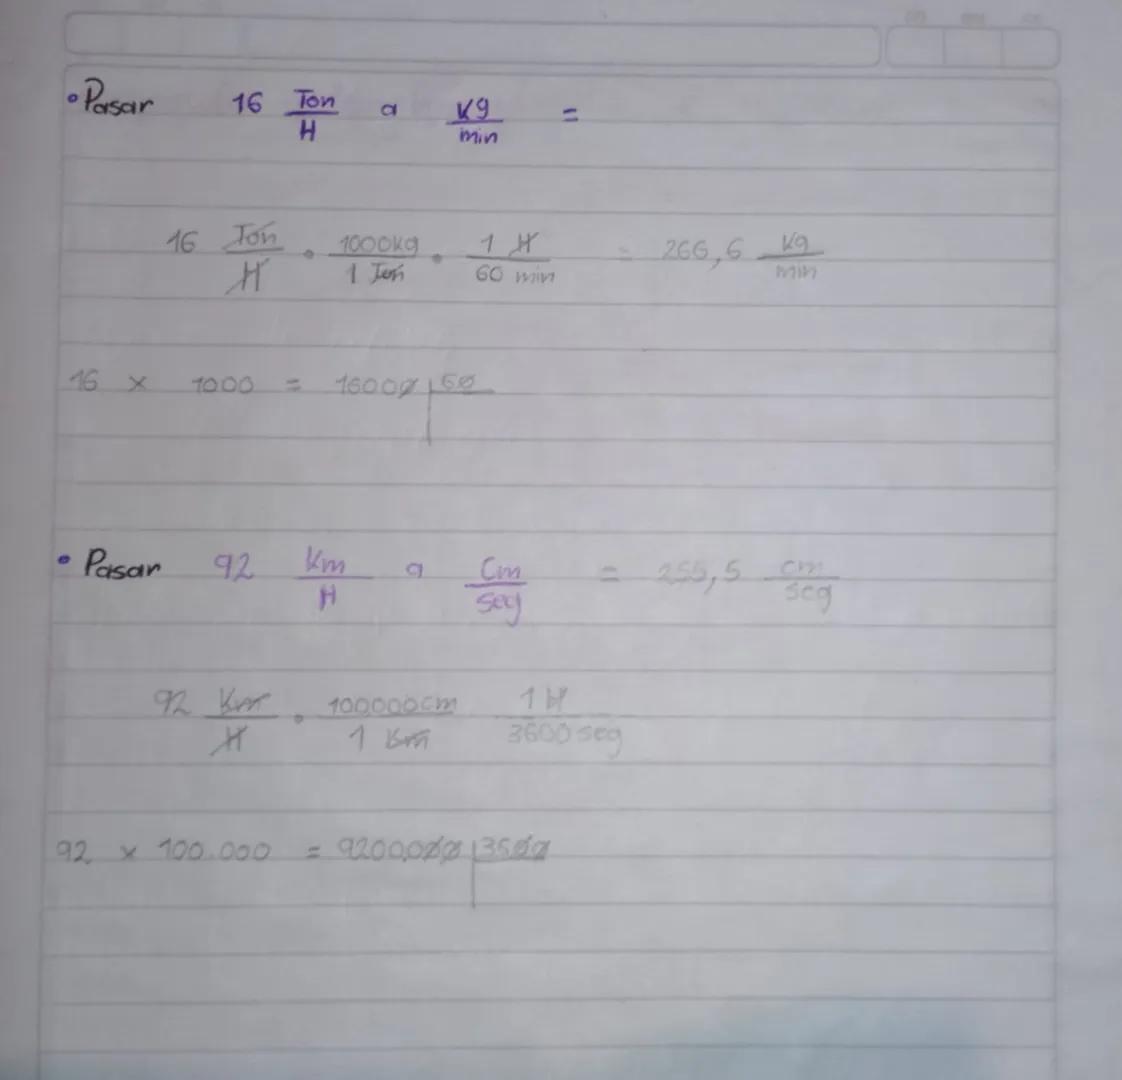 • Pasar 16 Ton/H a Kg/min =
16 Ton/H • 1000kg/1 Ton • 1 H/60 min = 266,6 Kg/min
16 x 1000 = 16000 | 60
• Pasar 92 Km/H a Cm/seg = 255,5 cm/seg
92 Km/H • 100,000cm/1 Km 1 H/3600 seg
92 x 100.000 = 9200.000 | 3600